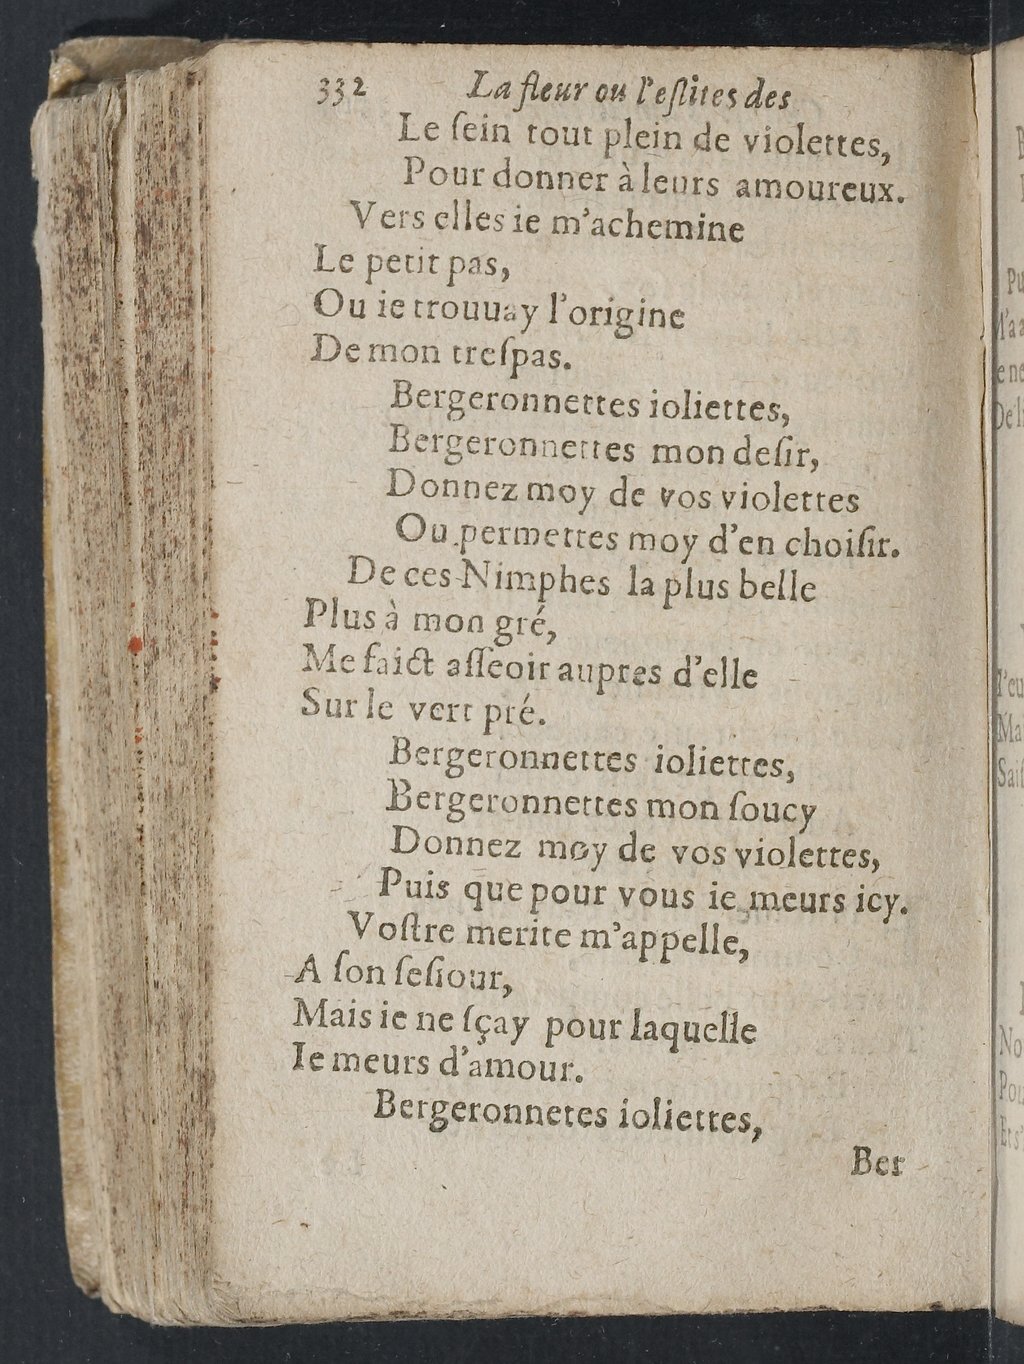 332 La fleur ou l'eſlites des
Le ſein tout plein de violettes,
Pour donner à leurs amoureux.
Vers elles ie m'achemine
Le petit pas,
Ou ie trouuay l'origine
De mon treſpas.
Bergeronnettes ioliettes,
Bergeronnettes mon deſir,
Donnez moy de vos violettes
Ou permettes moy d'en choiſir.
De ces Nimphes la plus belle
Plus à mon gré,
Me faict aſſeoir aupres d'elle
Sur le vert pré.
Bergeronnettes ioliettes,
Bergeronnettes mon ſoucy
Donnez moy de vos violettes,
Puis que pour vous ie meurs icy.
Voſtre merite m'appelle,
A ſon ſeſiour,
Mais ie ne ſçay pour laquelle
Ie meurs d'amour.
Bergeronnetes ioliettes,
Ber